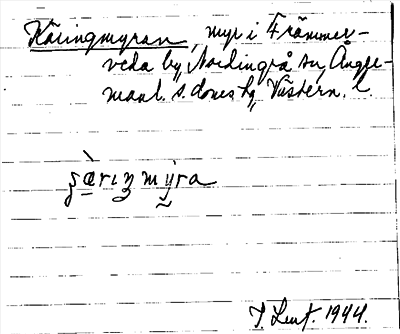 Käringmyran, myr i Främmer-
veda by, Nordingrå sn, Ånger-
manl. s. doms hg, Västern. l.
ʂæ̀rɪŋ mỳra
J. Lent. 1944.